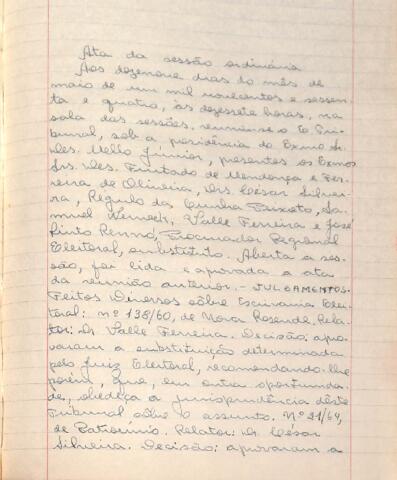 Ata da sessão ordinária
Aos dezenove dias do mês de
maio de um mil novecentos e sessen-
ta e quatro, às dezessete horas, na
sala das sessões, reuniu-se o E. Tri-
bunal, sob a presidência do Exmo. Sr.
Des. Mello Júnior, presentes os Exmos.
Srs. Des. Furtado de Mendonça e Fer-
reira de Oliveira, Drs. César Silvei-
ra, Régulo da Cunha Peixoto, Sa-
muel Werneck, Valle Ferreira e José
Pinto Renno, Procurador Regional
Eleitoral, substituto. Aberta a ses-
são, foi lida e aprovada a ata
da reunião anterior. - JULGAMENTOS -
Feitos Diversos sôbre Escrivania Elei-
toral: nº 138/60, de Nova Resende. Rela-
tor: Dr. Valle Ferreira. Decisão: apro-
varam a substituição determinada
pelo Juiz Eleitoral, recomendando-lhe
porém, que, em outra oportunida-
de, obedeça a jurisprudência dêste
Tribunal sôbre o assunto. Nº 21/64,
de Patrocínio. Relator: Dr. César
Silveira. Decisão: aprovaram a